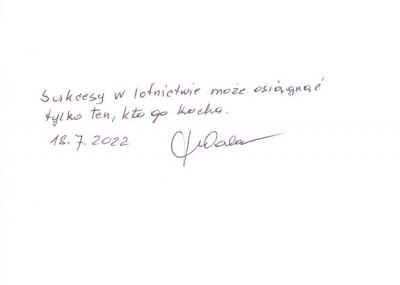 Sukcesy w lotnictwie może osiągnąć
tylko ten, kto go kocha.
18.7.2022